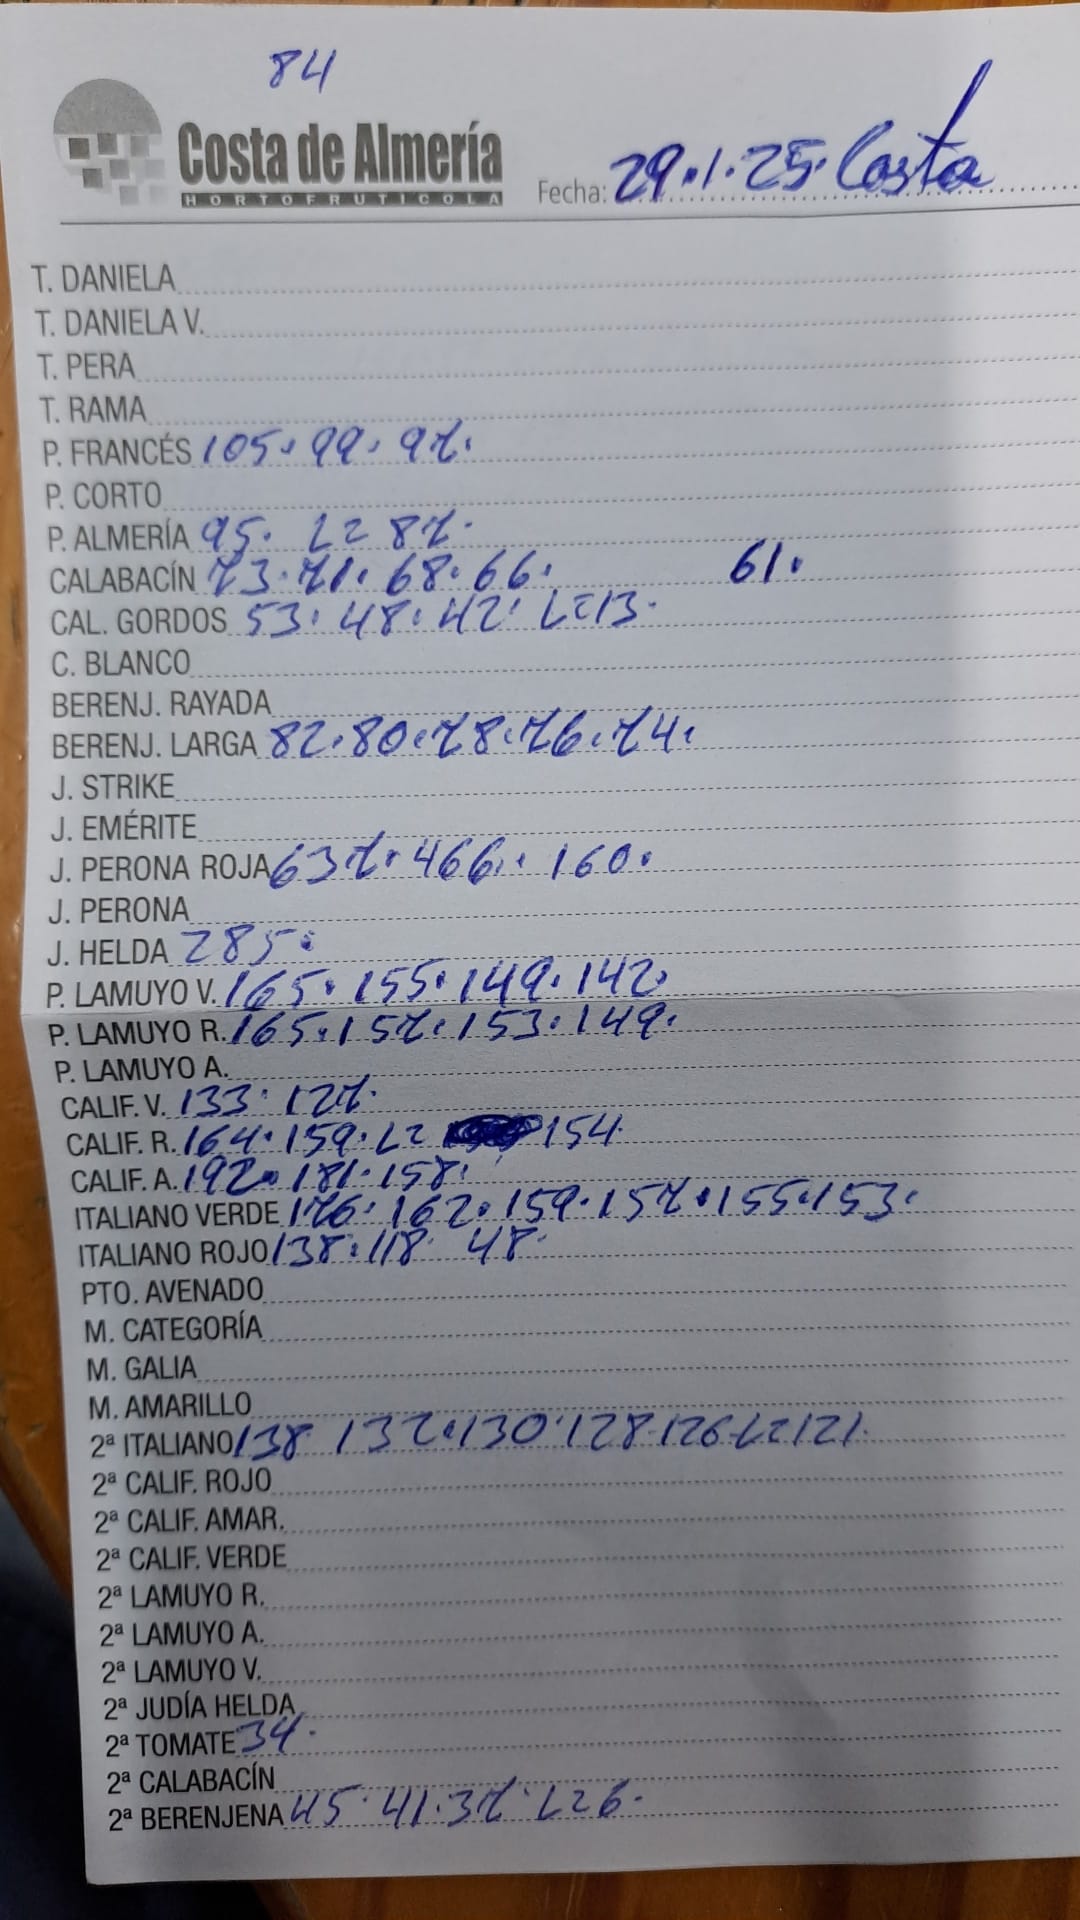 84
Costa de Almería
HORTOFRUTICOLA
Fecha: 29.1.25. Costa
T. DANIELA
T. DANIELA V.
T. PERA
T. RAMA
P. FRANCÉS 105. 99. 97.
P. CORTO
P. ALMERÍA 95. L= 87.
CALABACÍN 73. 71. 68. 66. 61.
CAL. GORDOS 53. 48. 42. L=13.
C. BLANCO
BERENJ. RAYADA
BERENJ. LARGA 82. 80. 78. 76. 74.
J. STRIKE
J. EMÉRITE
J. PERONA ROJA 637. 466. 160.
J. PERONA
J. HELDA 285.
P. LAMUYO V. 165. 155. 149. 142.
P. LAMUYO R. 165. 157. 153. 149.
P. LAMUYO A.
CALIF. V. 133. 127.
CALIF. R. 164. 159. L= 154.
CALIF. A. 192. 181. 158.
ITALIANO VERDE 176. 162. 159. 157. 155. 153.
ITALIANO ROJO 138. 118. 48.
PTO. AVENADO
M. CATEGORÍA
M. GALIA
M. AMARILLO
2ª ITALIANO 138. 132. 130. 128. 126. L= 121.
2ª CALIF. ROJO
2ª CALIF. AMAR.
2ª CALIF. VERDE
2ª LAMUYO R.
2ª LAMUYO A.
2ª LAMUYO V.
2ª JUDÍA HELDA
2ª TOMATE 34.
2ª CALABACÍN
2ª BERENJENA 45. 41. 37. L=26.